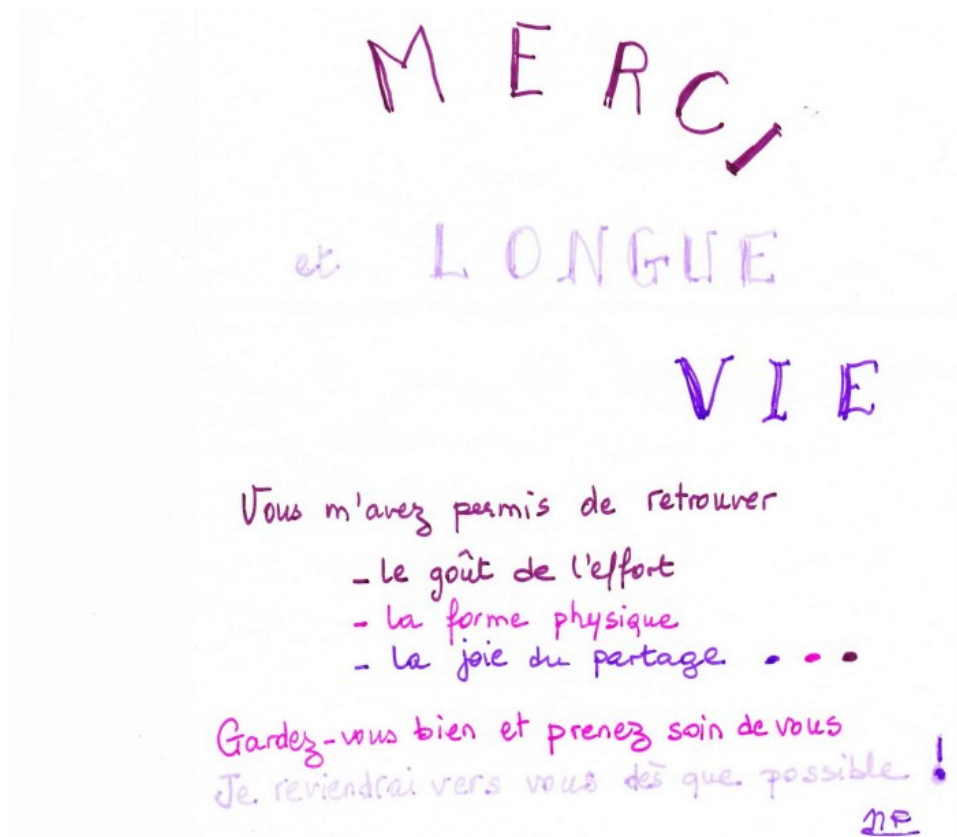 MERCI
et LONGUE
VIE
Vous m'avez permis de retrouver
- le goût de l'effort
- la forme physique
- la joie du partage ...
Gardez-vous bien et prenez soin de vous
Je reviendrai vers vous dès que possible !